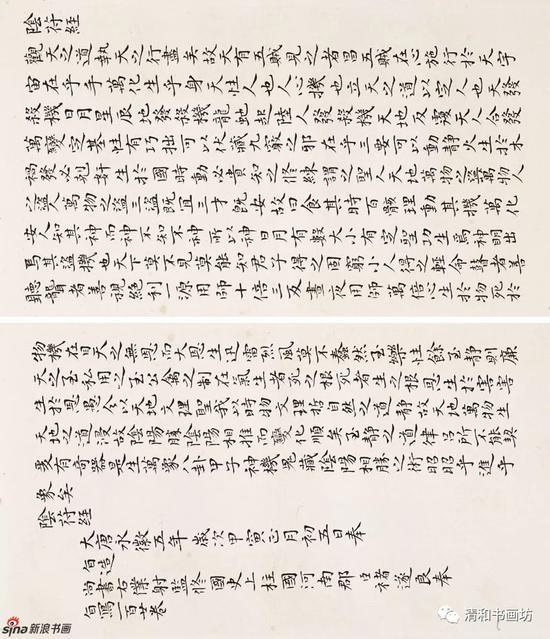 陰符経
觀天之道執天之行盡矣故天有五賊見之者昌五賊在心施行於天宇
宙在乎手萬化生乎身天性人也人心機也立天之道以定人也天發
殺機日月星辰地發殺機龍虵起陸人發殺機天地反覆天人合發
萬變定基性有巧拙可以伏藏九竅之邪在乎三要可以動靜火生於木
禍發必剋奸生於國時動必貴知之修練謂之聖人天地萬物之盜萬物人
之盜人萬物之盜三盜既宜三才既安故曰食其時百骸理動其機萬化
安人知其神而神不知不神所以神日月有數大小有定聖功生焉神明出
焉其盜機也天下莫不見莫能知君子得之固窮小人得之輕命瞽者善
聽聾者善視絕利一源用師十倍三反晝夜用師萬倍心生於物死於
物機在目天之無恩而大恩生迅雷烈風莫不蠢然至樂性餘至靜則廉
天之至私用之至公禽之制在氣生者死之根死者生之根恩生於害害
生於恩愚人以天地文理聖我以時物文理哲自然之道靜故天地萬物生
天地之道浸故陰陽勝陰陽相推而變化順矣至靜之道律呂所不能契
爰有奇器是生萬象八卦甲子神機鬼藏陰陽相勝之術昭昭乎進乎
象矣
陰符経
大唐永徽五年歲次甲寅正月初五日奉
旨造
尚書右僕射監修國史上柱國河南郡臣褚遂良奉
旨寫一百廿卷
sina新浪书画
清和书画坊